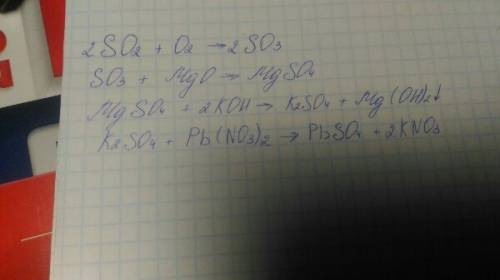 2SO₂ + O₂ → 2SO₃
SO₃ + MgO → MgSO₄
MgSO₄ + 2KOH → K₂SO₄ + Mg(OH)₂↓
K₂SO₄ + Pb(NO₃)₂ → PbSO₄ + 2KNO₃